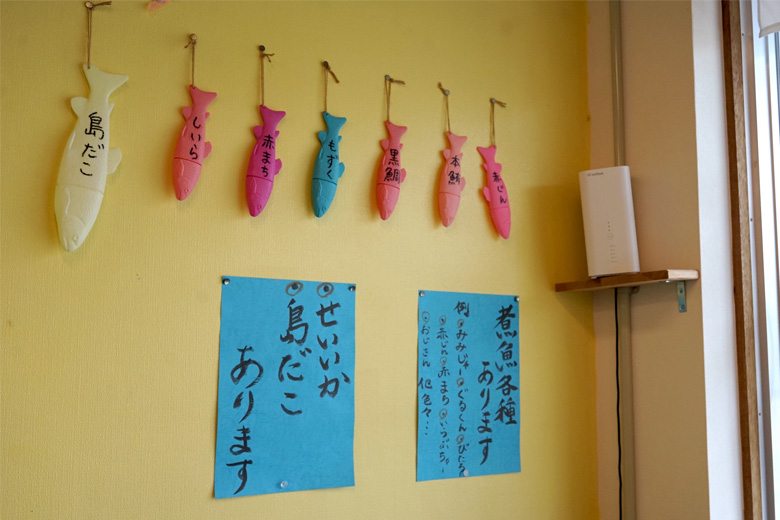 島だこ
しいら
赤まち
もずく
黒鯛
本鮪
赤じん
◎せいいか
◎島だこ
あります
煮魚各種
あります
例◎みみじゃー◎ぐるくん◎びたろ
◎赤じん◎赤まち◎いらぶちゃー
◎おじさん 他色々…